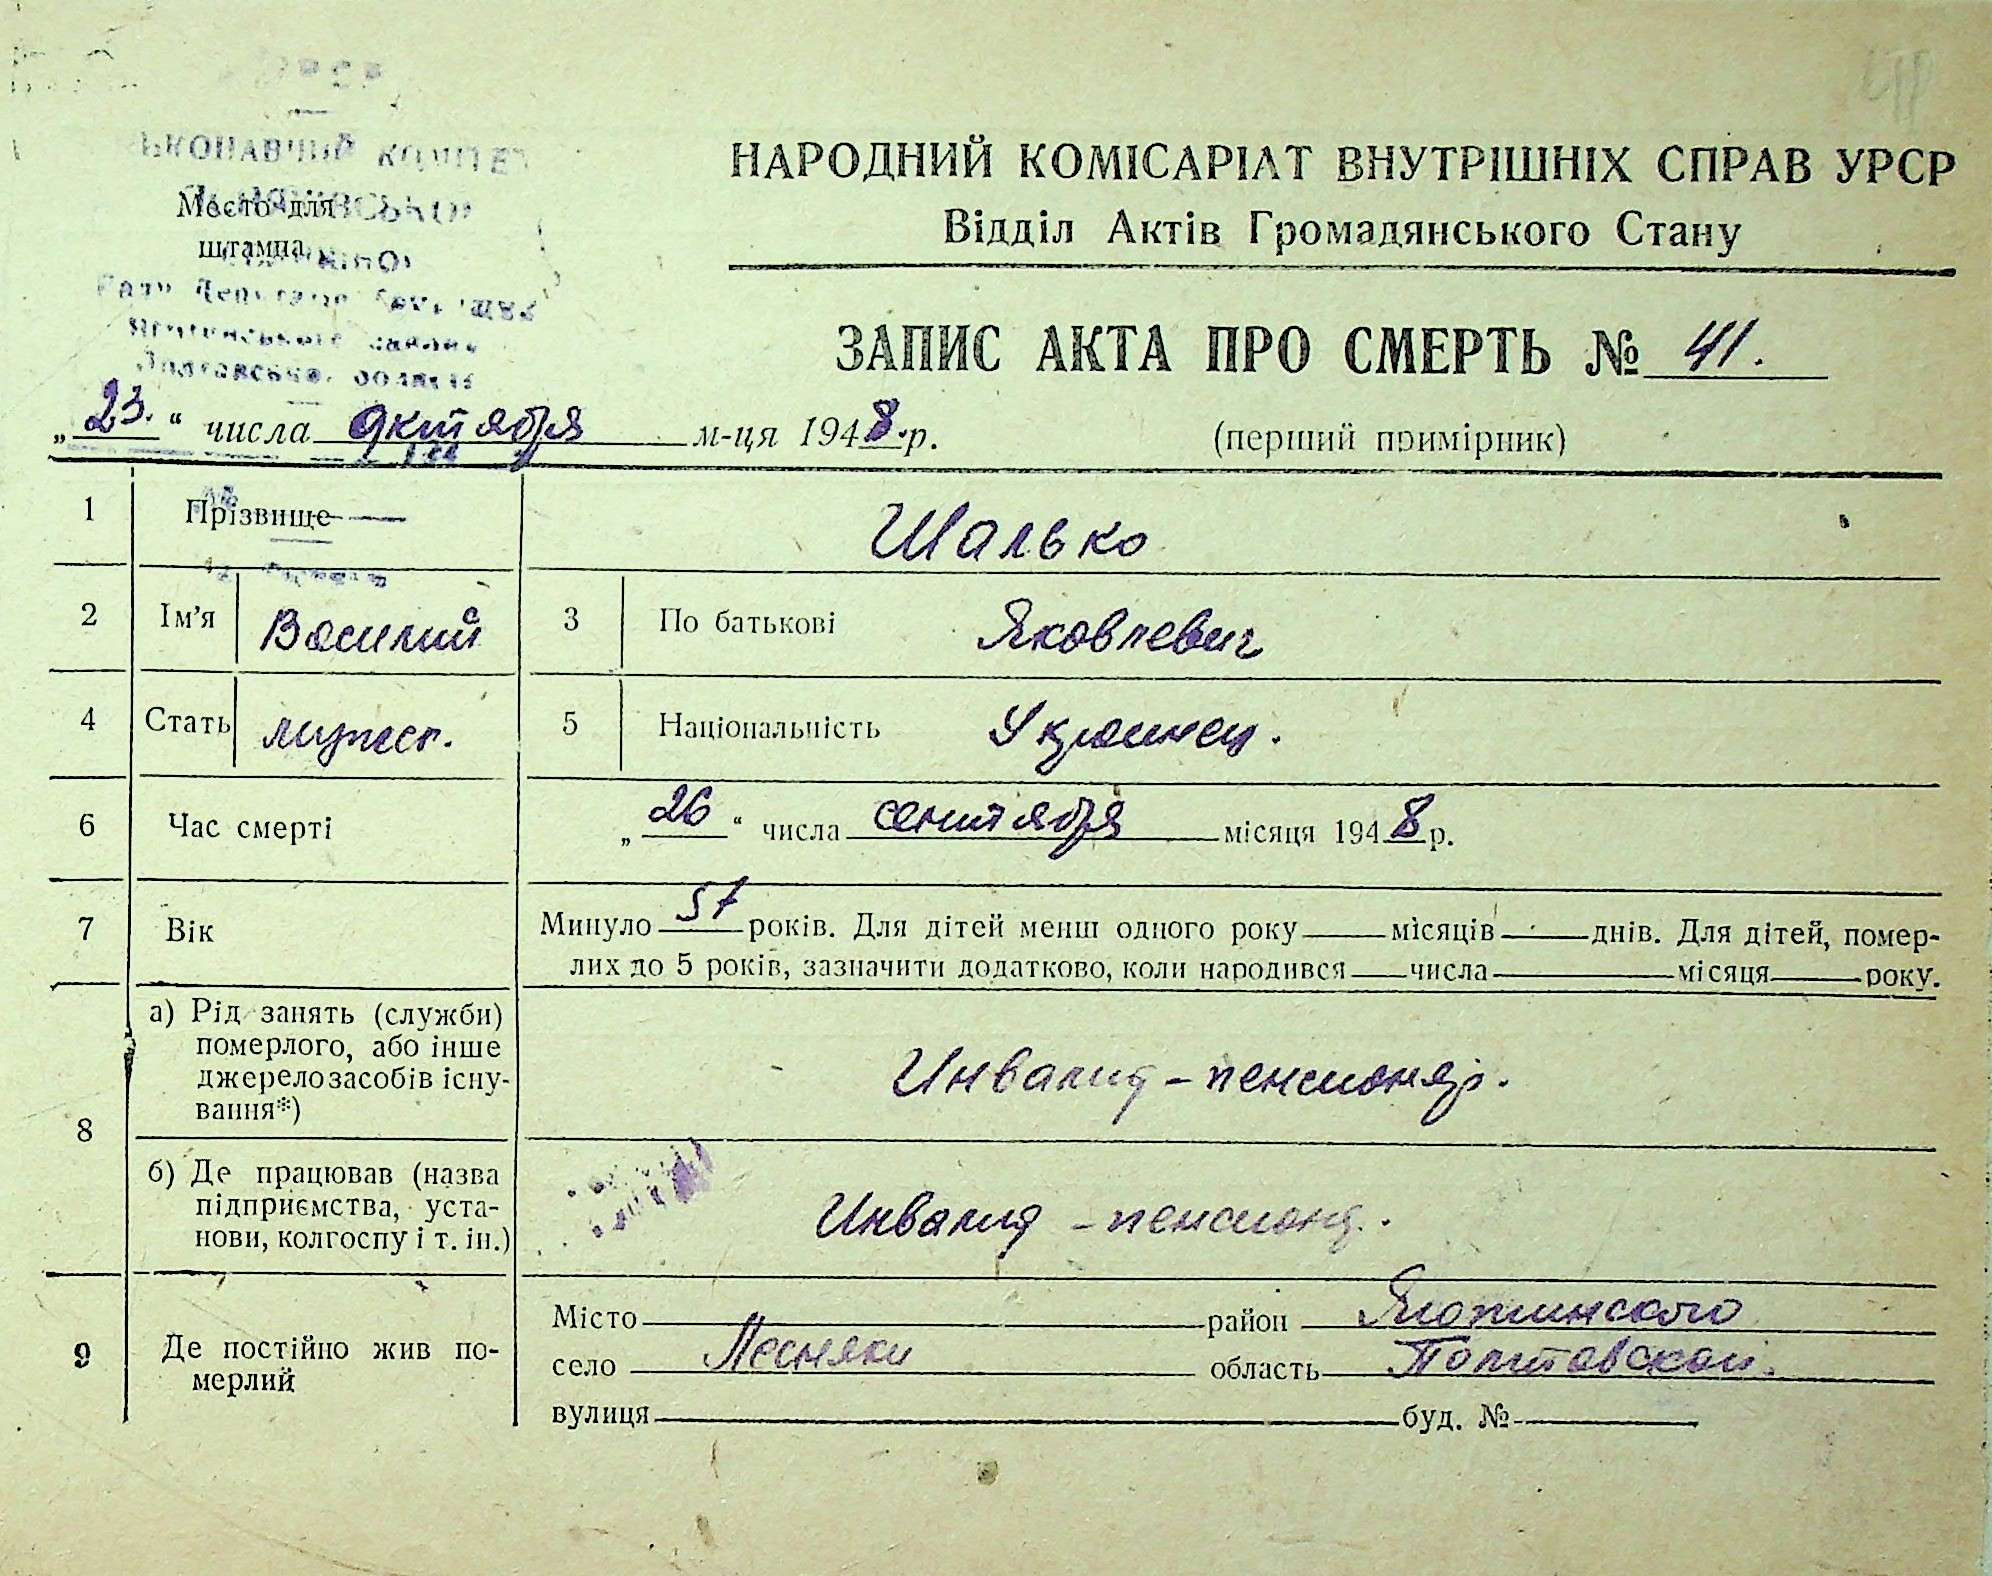 НАРОДНИЙ КОМІСАРІАТ ВНУТРІШНІХ СПРАВ УРСР
Відділ Актів Громадянського Стану
Место для
штампа
ЗАПИС АКТА ПРО СМЕРТЬ № 41.
„23.“ числа октября м-ця 1948.р.
(перший примірник)
1 Прізвище Шалько
2 Ім’я Василий 3 По батькові Яковлевич
4 Стать мужск. 5 Національність Украинец.
6 Час смерті „26“ числа сентября місяця 1948 р.
7 Вік Минуло 57 років. Для дітей менш одного року місяців днів. Для дітей, помер-
лих до 5 років, зазначити додатково, коли народився числа місяця року.
8 а) Рід занять (служби)
померлого, або інше
джерело засобів існу-
вання*)
Инвалид - пенсионер.
б) Де працював (назва
підприємства, уста-
нови, колгоспу і т. ін.)
Инвалид - пенсион.
9 Де постійно жив по-
мерлий
Місто район Яготинского
село Лесняки область Полтавской.
вулиця буд. №